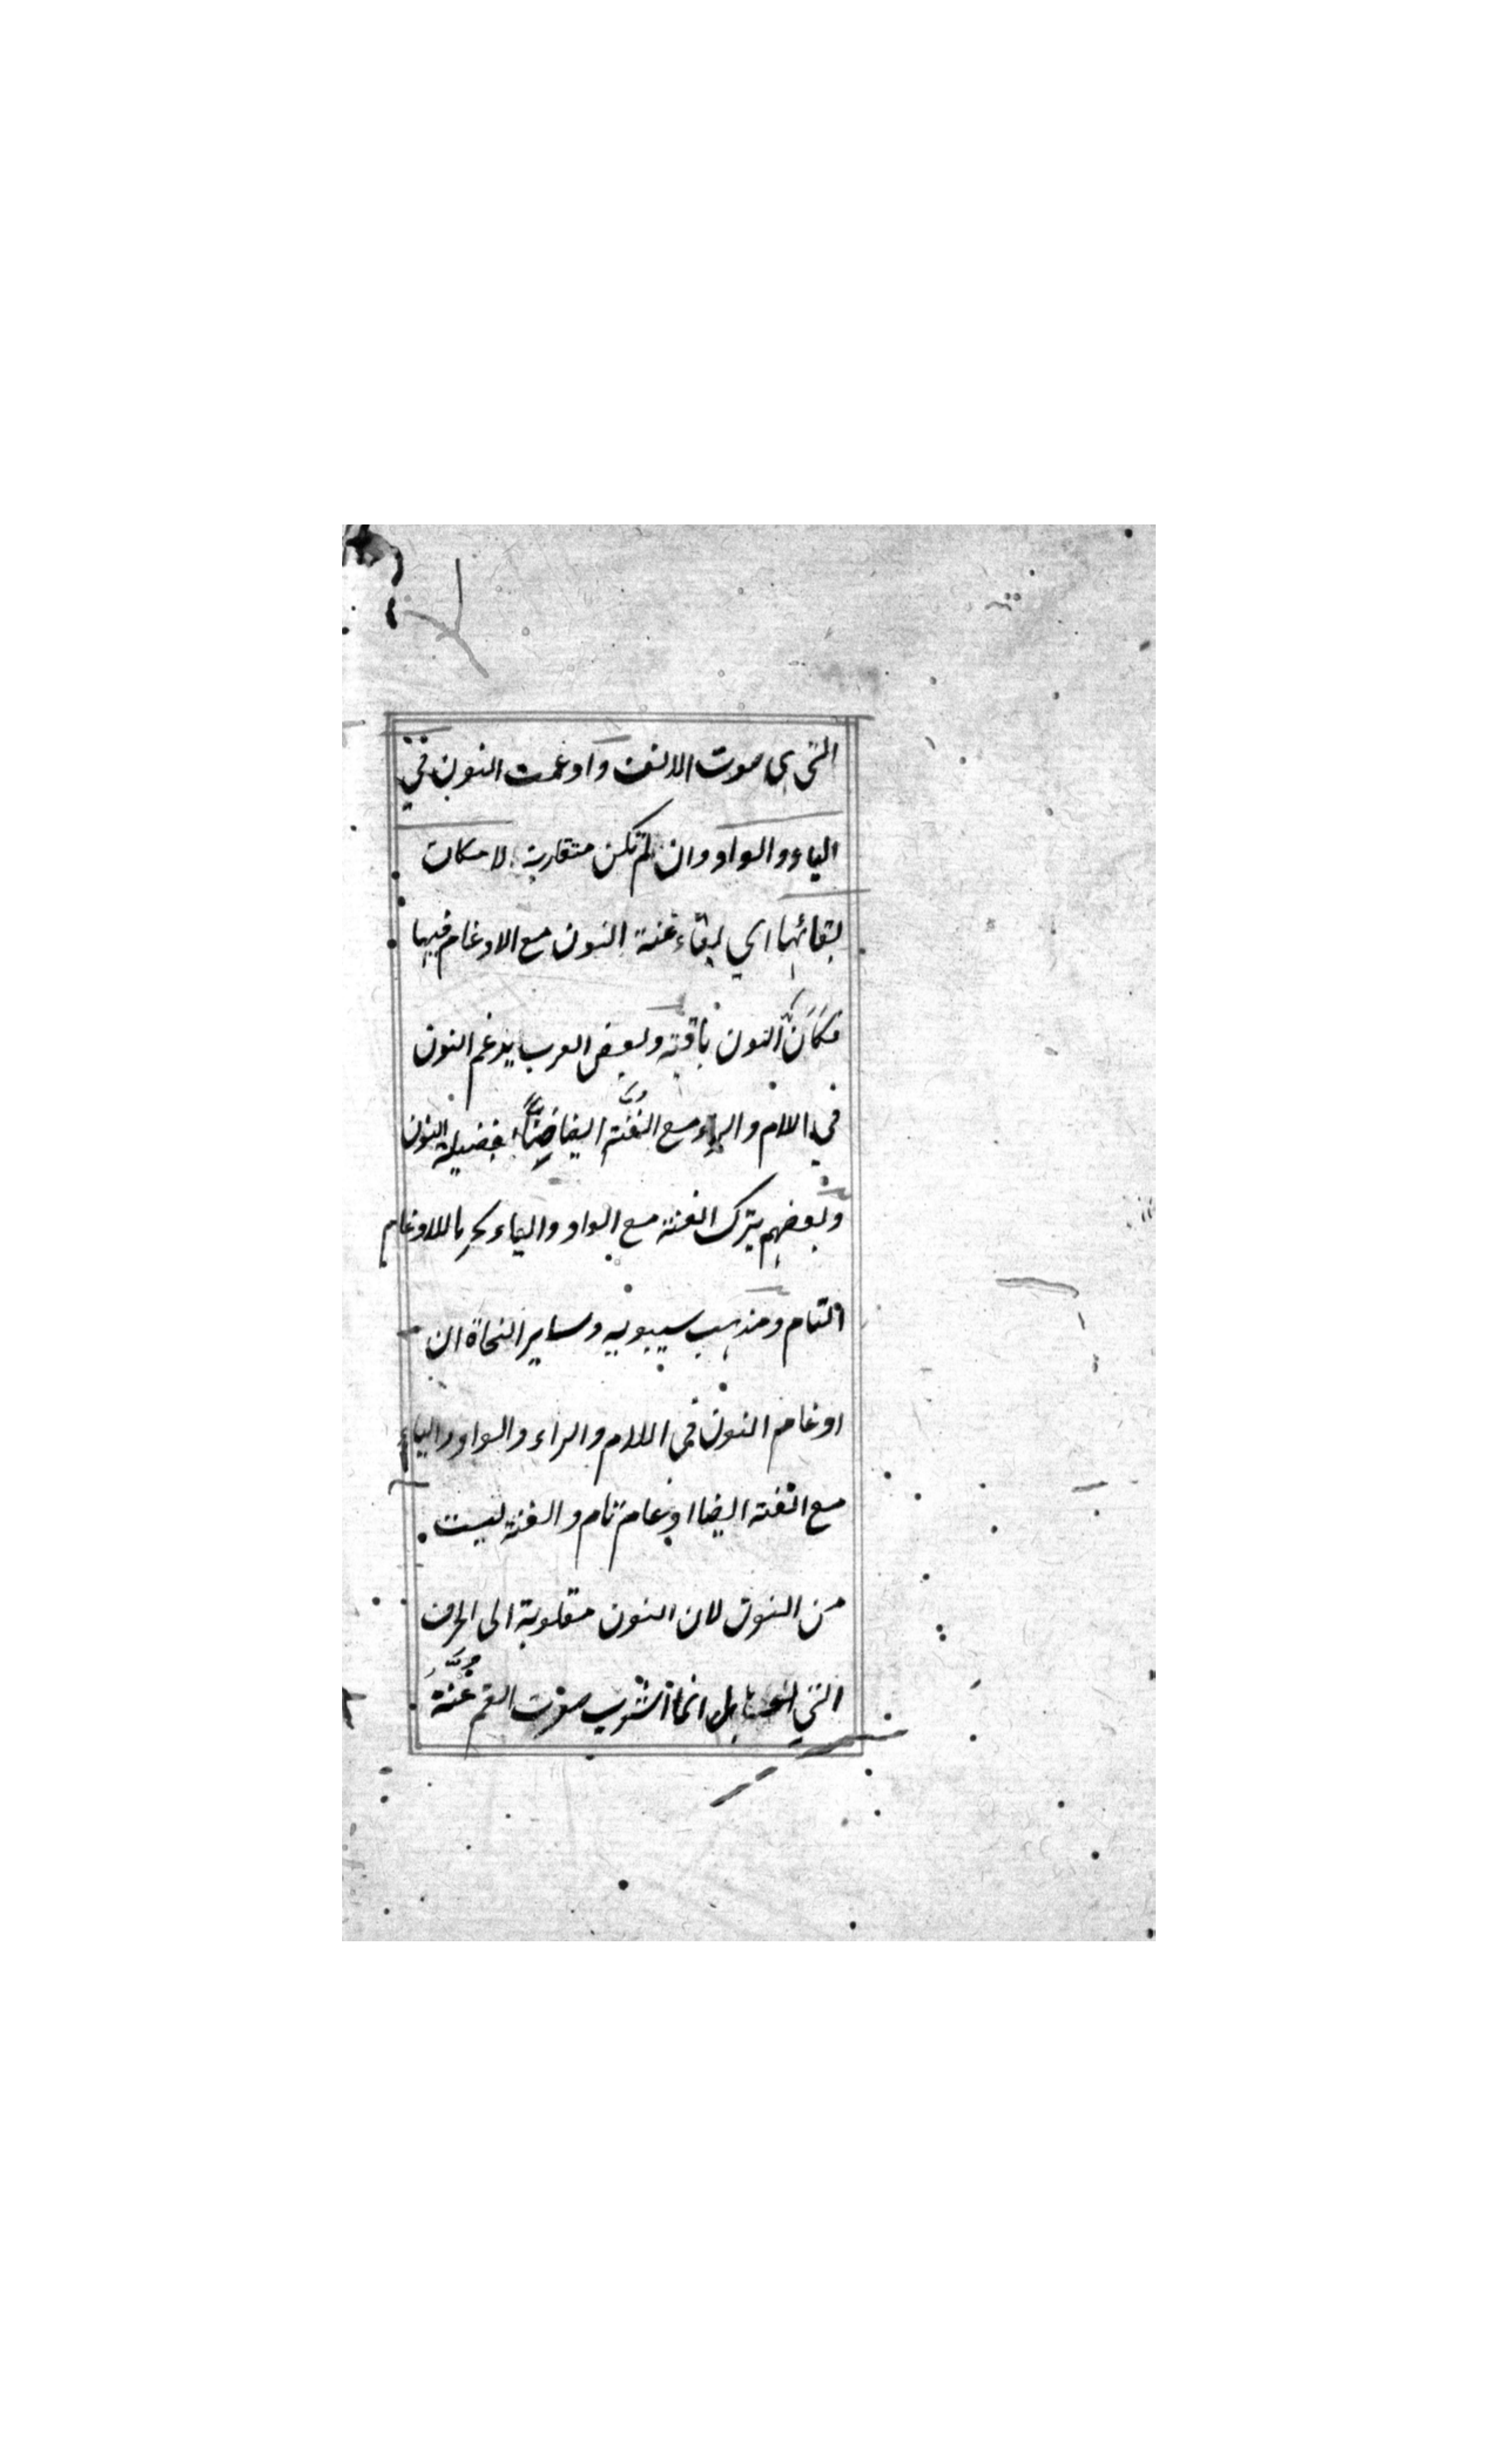 التي هي صوت الانف وادغمت النون في
الياء والواو وان لم تكن متقاربة لامكان
بقائها اي لبقاء غنة النون مع الادغام فيها
فكَاَنَّ النون باقية وبعض العرب يدغم النون
في اللام والراء مع الغُنَّة ايضا ضِنّاً بفضيلة النون
وبعضهم يترك الغنة مع الواو والياء للادغام
التام ومذهب سيبويه وساير النحاة ان
ادغام النون في اللام والراء والواو والياء
مع الغنة ايضا ادغام تام والغنة ليست
من النون لان النون مقلوبة الى الحرف
التي بل انما اشرب صوت الفم غُنَّةً